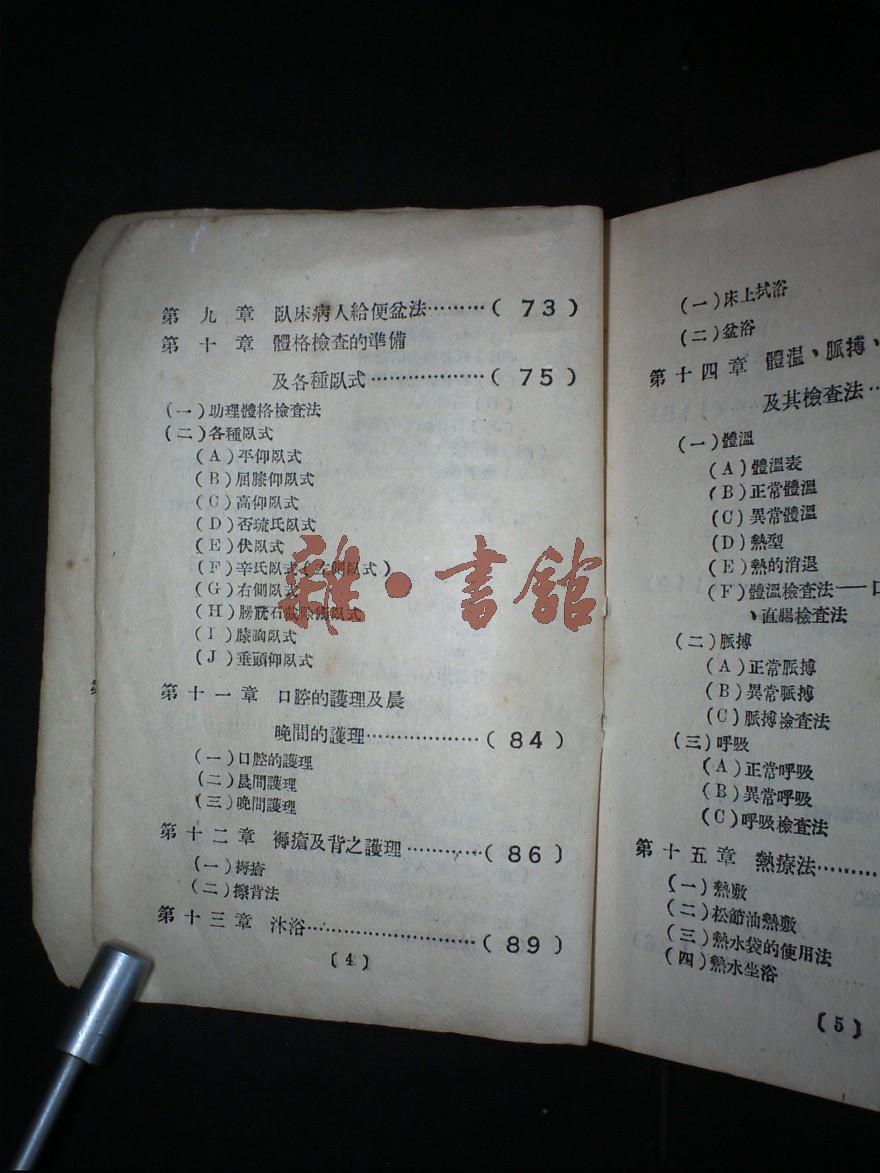 第九章 臥床病人給便盆法………(73)
第十章 體格檢查的準備
及各種臥式………………(75)
(一)助理體格檢查法
(二)各種臥式
(A)平仰臥式
(B)屈膝仰臥式
(C)高仰臥式
(D)否琉氏臥式
(E)伏臥式
(F)辛氏臥式(左側臥式)
(G)右側臥式
(H)膀胱石截除術臥式
(I)膝胸臥式
(J)垂頭仰臥式
第十一章 口腔的護理及晨
晚間的護理………………(84)
(一)口腔的護理
(二)晨間護理
(三)晚間護理
第十二章 褥瘡及背之護理…………(86)
(一)褥瘡
(二)擦背法
第十三章 沐浴………………………(89)
(4)
雜·書館
(一)床上拭浴
(二)盆浴
第十四章 體温、脈搏、
及其檢查法…
(一)體溫
(A)體溫表
(B)正常體溫
(C)異常體溫
(D)熱型
(E)熱的消退
(F)體溫檢查法——口
、直腸檢查法
(二)脈搏
(A)正常脈搏
(B)異常脈搏
(C)脈搏檢查法
(三)呼吸
(A)正常呼吸
(B)異常呼吸
(C)呼吸檢查法
第十五章 熱療法………
(一)熱敷
(二)松節油熱敷
(三)熱水袋的使用法
(四)熱水坐浴
(5)